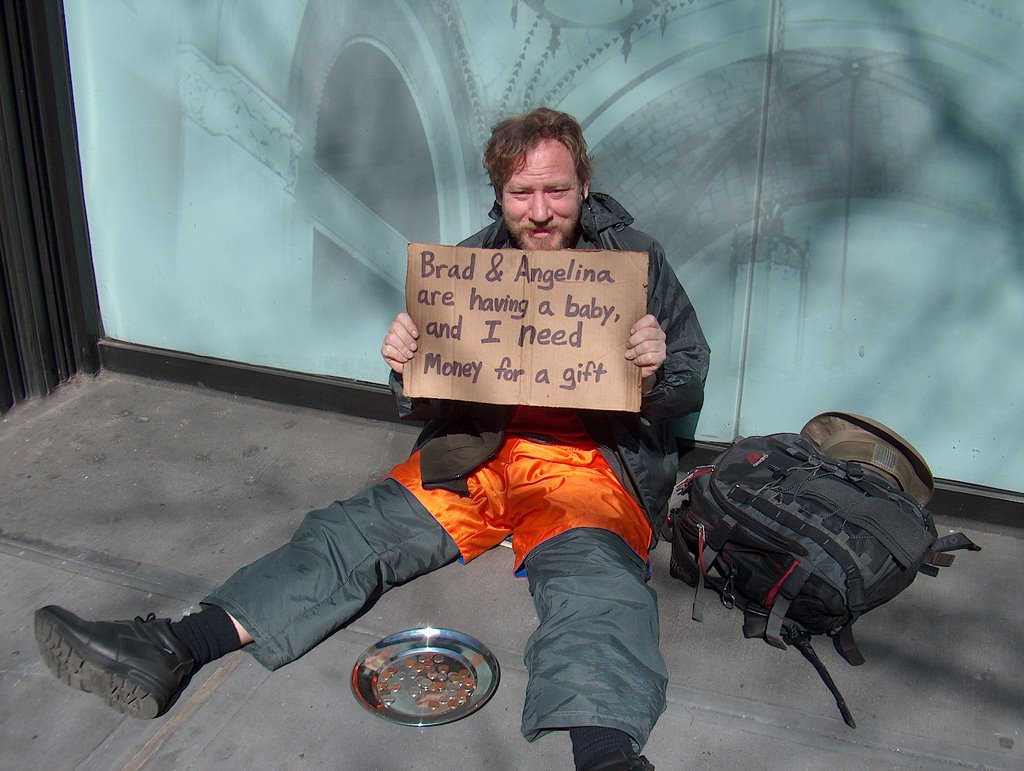 Brad & Angelina
are having a baby,
and I need
Money for a gift